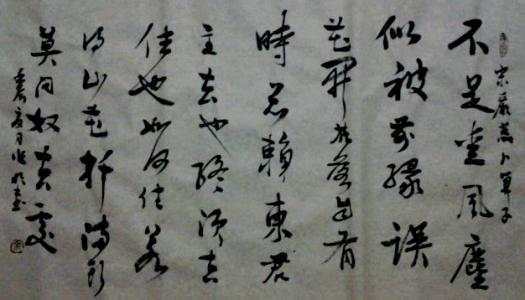 宋嚴蕊卜算子
不是愛風塵
似被前緣誤
花開花落自有
時總賴東君
主去也終須去
住也如何住若
得山花插滿頭
莫問奴歸處